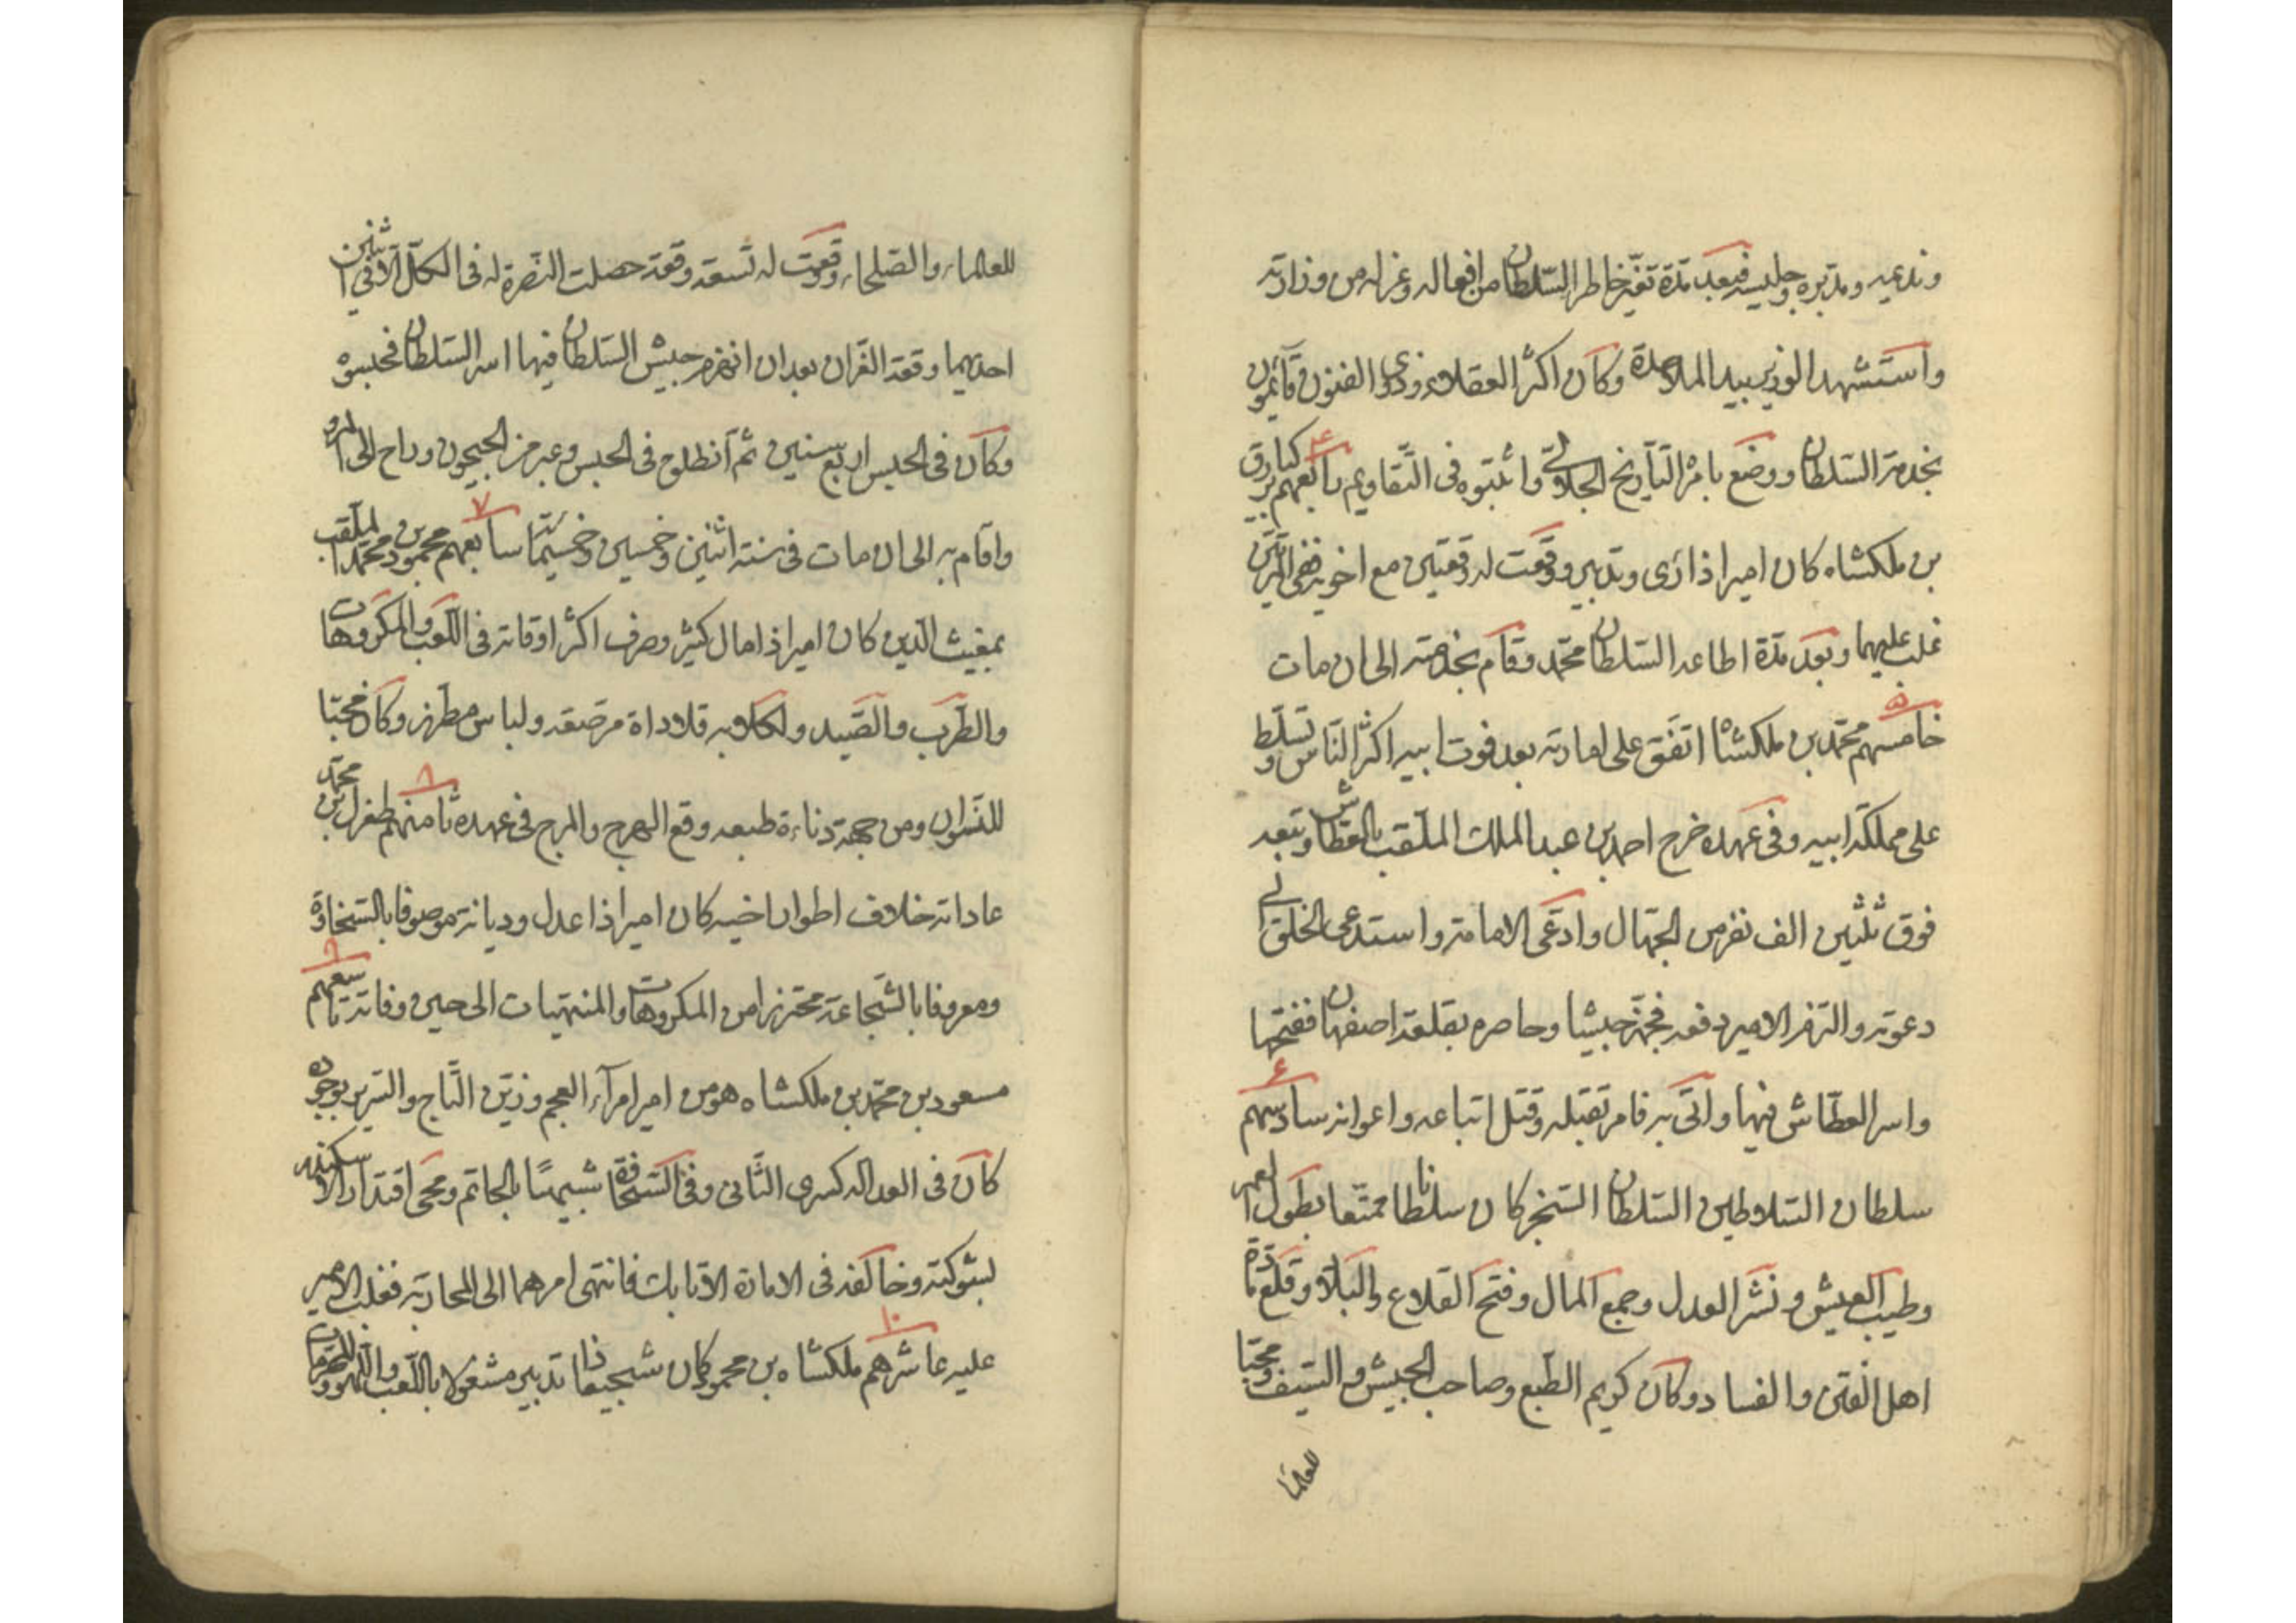 ونديمه ومدبره وجليسه فبعد مدة تغير خاطر السلطان من افعاله وعزله من وزارته
واستشهد الوزير بيد الملاحدة وكان اكثر العقلاء وذوى الفنون قائمون
بخدمة السلطان ووضع بامره التاريخ الجلالى واثبتوه فى التقاويم ٤ رابعهم بركيارق
بن ملكشاه كان اميرا ذا رى وتدبير ووقعت له وقعتين مع اخويه ففى المرتين
غلب عليهما وبعد مدة اطاعه السلطان محمد وقام بخدمته الى ان مات
٥ خامسهم محمد بن ملكشاه اتفق على امارته بعد فوت ابيه اكثر الناس وتسلط
على مملكة ابيه وفى عهده خرج احمد بن عبد الملك الملقب بالعطاش وتبعه
فوق ثلثين الف نفر من الجهال وادعى الامامة واستدعى الخلق الى
دعوته والتزم الامير دفعه فجهز جيشا وحاصره بقلعة اصفهان ففتحها
واسر العطاش فيها واتى به فامر بقتله وقتل اتباعه واعوانه ٦ سادسهم
سلطان السلاطين السلطان السنجر كان سلطانا ممتعا بطول العمر
وطيب العيش ونشر العدل وجمع المال وفتح القلاع والبلاد وقلع مادة
اهل الفتن والفساد وكان كريم الطبع وصاحب الجيش والسيف ومحبا
للعلماء
للعلماء والصلحاء ووقعت له تسعة وقعة حصلت النصرة له فى الكل الا فى اثنين
احديهما وقعة الغزان بعد ان انهزم جيش السلطان فيها اسر السلطان فحبسوه
وكان فى الحبس اربع سنين ثم انطلق فى الحبس وعبر من الجيحون وراح الى المرو
واقام به الى ان مات فى سنة اثنين وخمسين وخمسمائة ٧ سابعهم محمود بن محمد الملقب
بمغيث الدين كان اميرا ذا مال كثير وصرف اكثر اوقاته فى اللعب والمكروهات
والطرب والصيد ولكلابه قلادات مرصعة ولباس مطرز وكان محبا
للنسوان ومن جهة دناءة طبعه وقع الهرج والمرج فى عهده ٨ ثامنهم طغرل بن محمد
عاداته خلاف اطوار اخيه كان اميرا ذا عدل وديانة موصوفا بالسخاوة
ومعروفا بالشجاعة محترزا من المكروهات والمنهيات الى حين وفاته ٩ تاسعهم
مسعود بن محمد بن ملكشاه هو من امير امرآء العجم وزين التاج والسرير بوجوده
كان فى العدالة كسرى الثانى وفى السخافة شبيها بالحاتم ومحى اقتدار الاسكندر
بشوكته وخالفه فى الامارة الاتابك فانتهى امرهما الى المحاربة فغلب الامير
عليه ١٠ عاشرهم ملكشاه بن محمود كان شجيعا ذا تدبير مشغولا باللعب واللهو والمحرمات